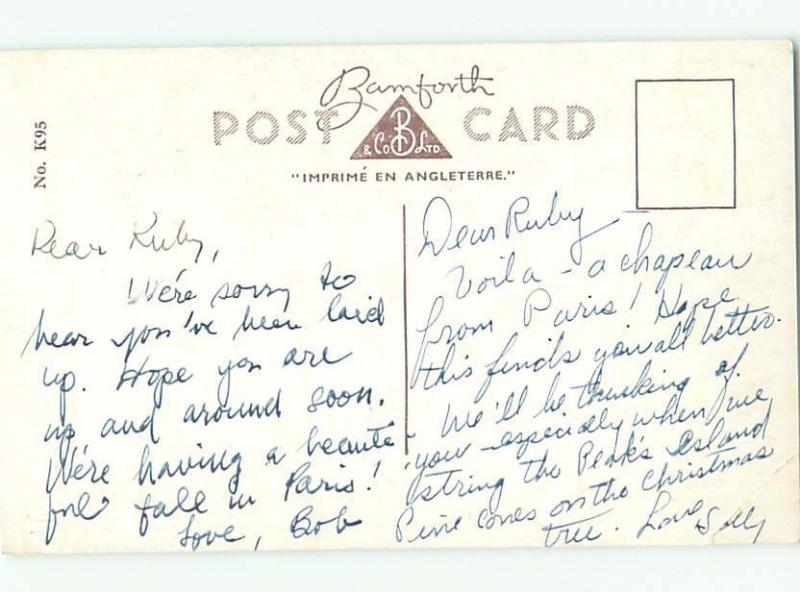 No. K95
Bamforth
POST CARD
B
& Co Ltd
"IMPRIMÉ EN ANGLETERRE."
Dear Ruby,
We're sorry to
hear you've been laid
up. Hope you are
up and around soon.
We're having a beauti-
ful fall in Paris!
Love, Bob
Dear Ruby
Voila - a chapeau
from Paris! Hope
this finds you all better.
We'll be thinking of
you - especially when
string the Peak's Island
Pine Cones on the Christmas
tree. Love Sally